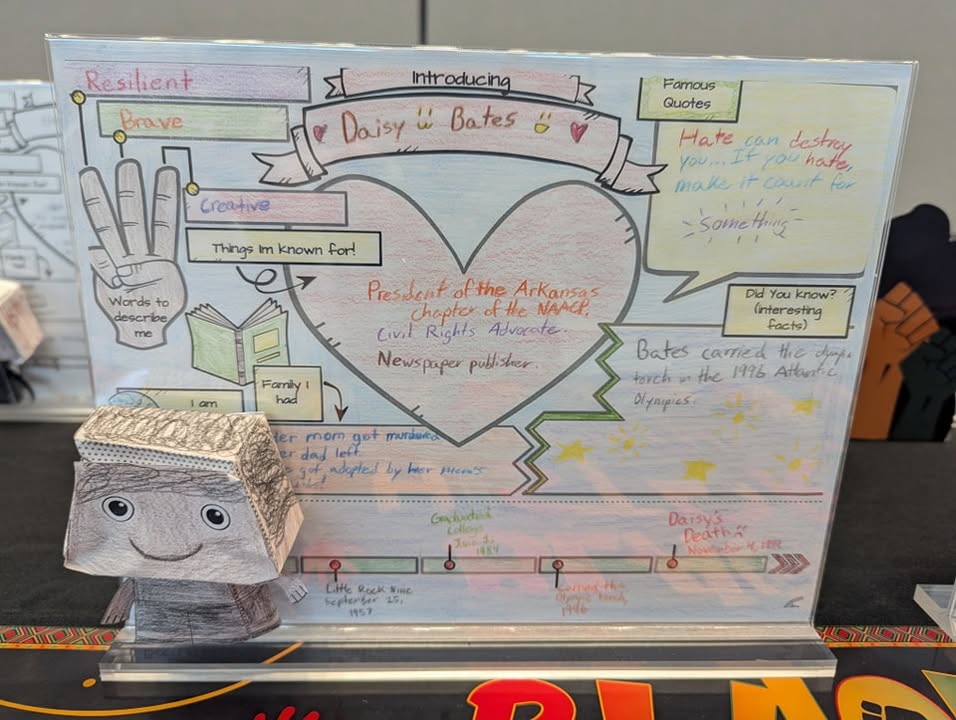 Resilient
Brave
Creative
Words to
describe
me
Introducing
Daisy Bates
Things Im known for!
President of the Arkansas
chapter of the NAACP.
Civil Rights Advocate.
Newspaper publisher.
Famous
Quotes
Hate can destroy
you... If you hate,
make it count for
Something
Did You know?
(interesting
facts)
Bates carried the olympic
torch in the 1996 Atlantic
Olympics.
I am
Family I
had
her mom got murdered
her dad left
got adopted by her mom's
Little Rock Nine
September 25,
1957
Graduated
College
1984
Carrying the
Olympic torch,
1996
Daisy's
Death
November 4,
BLA